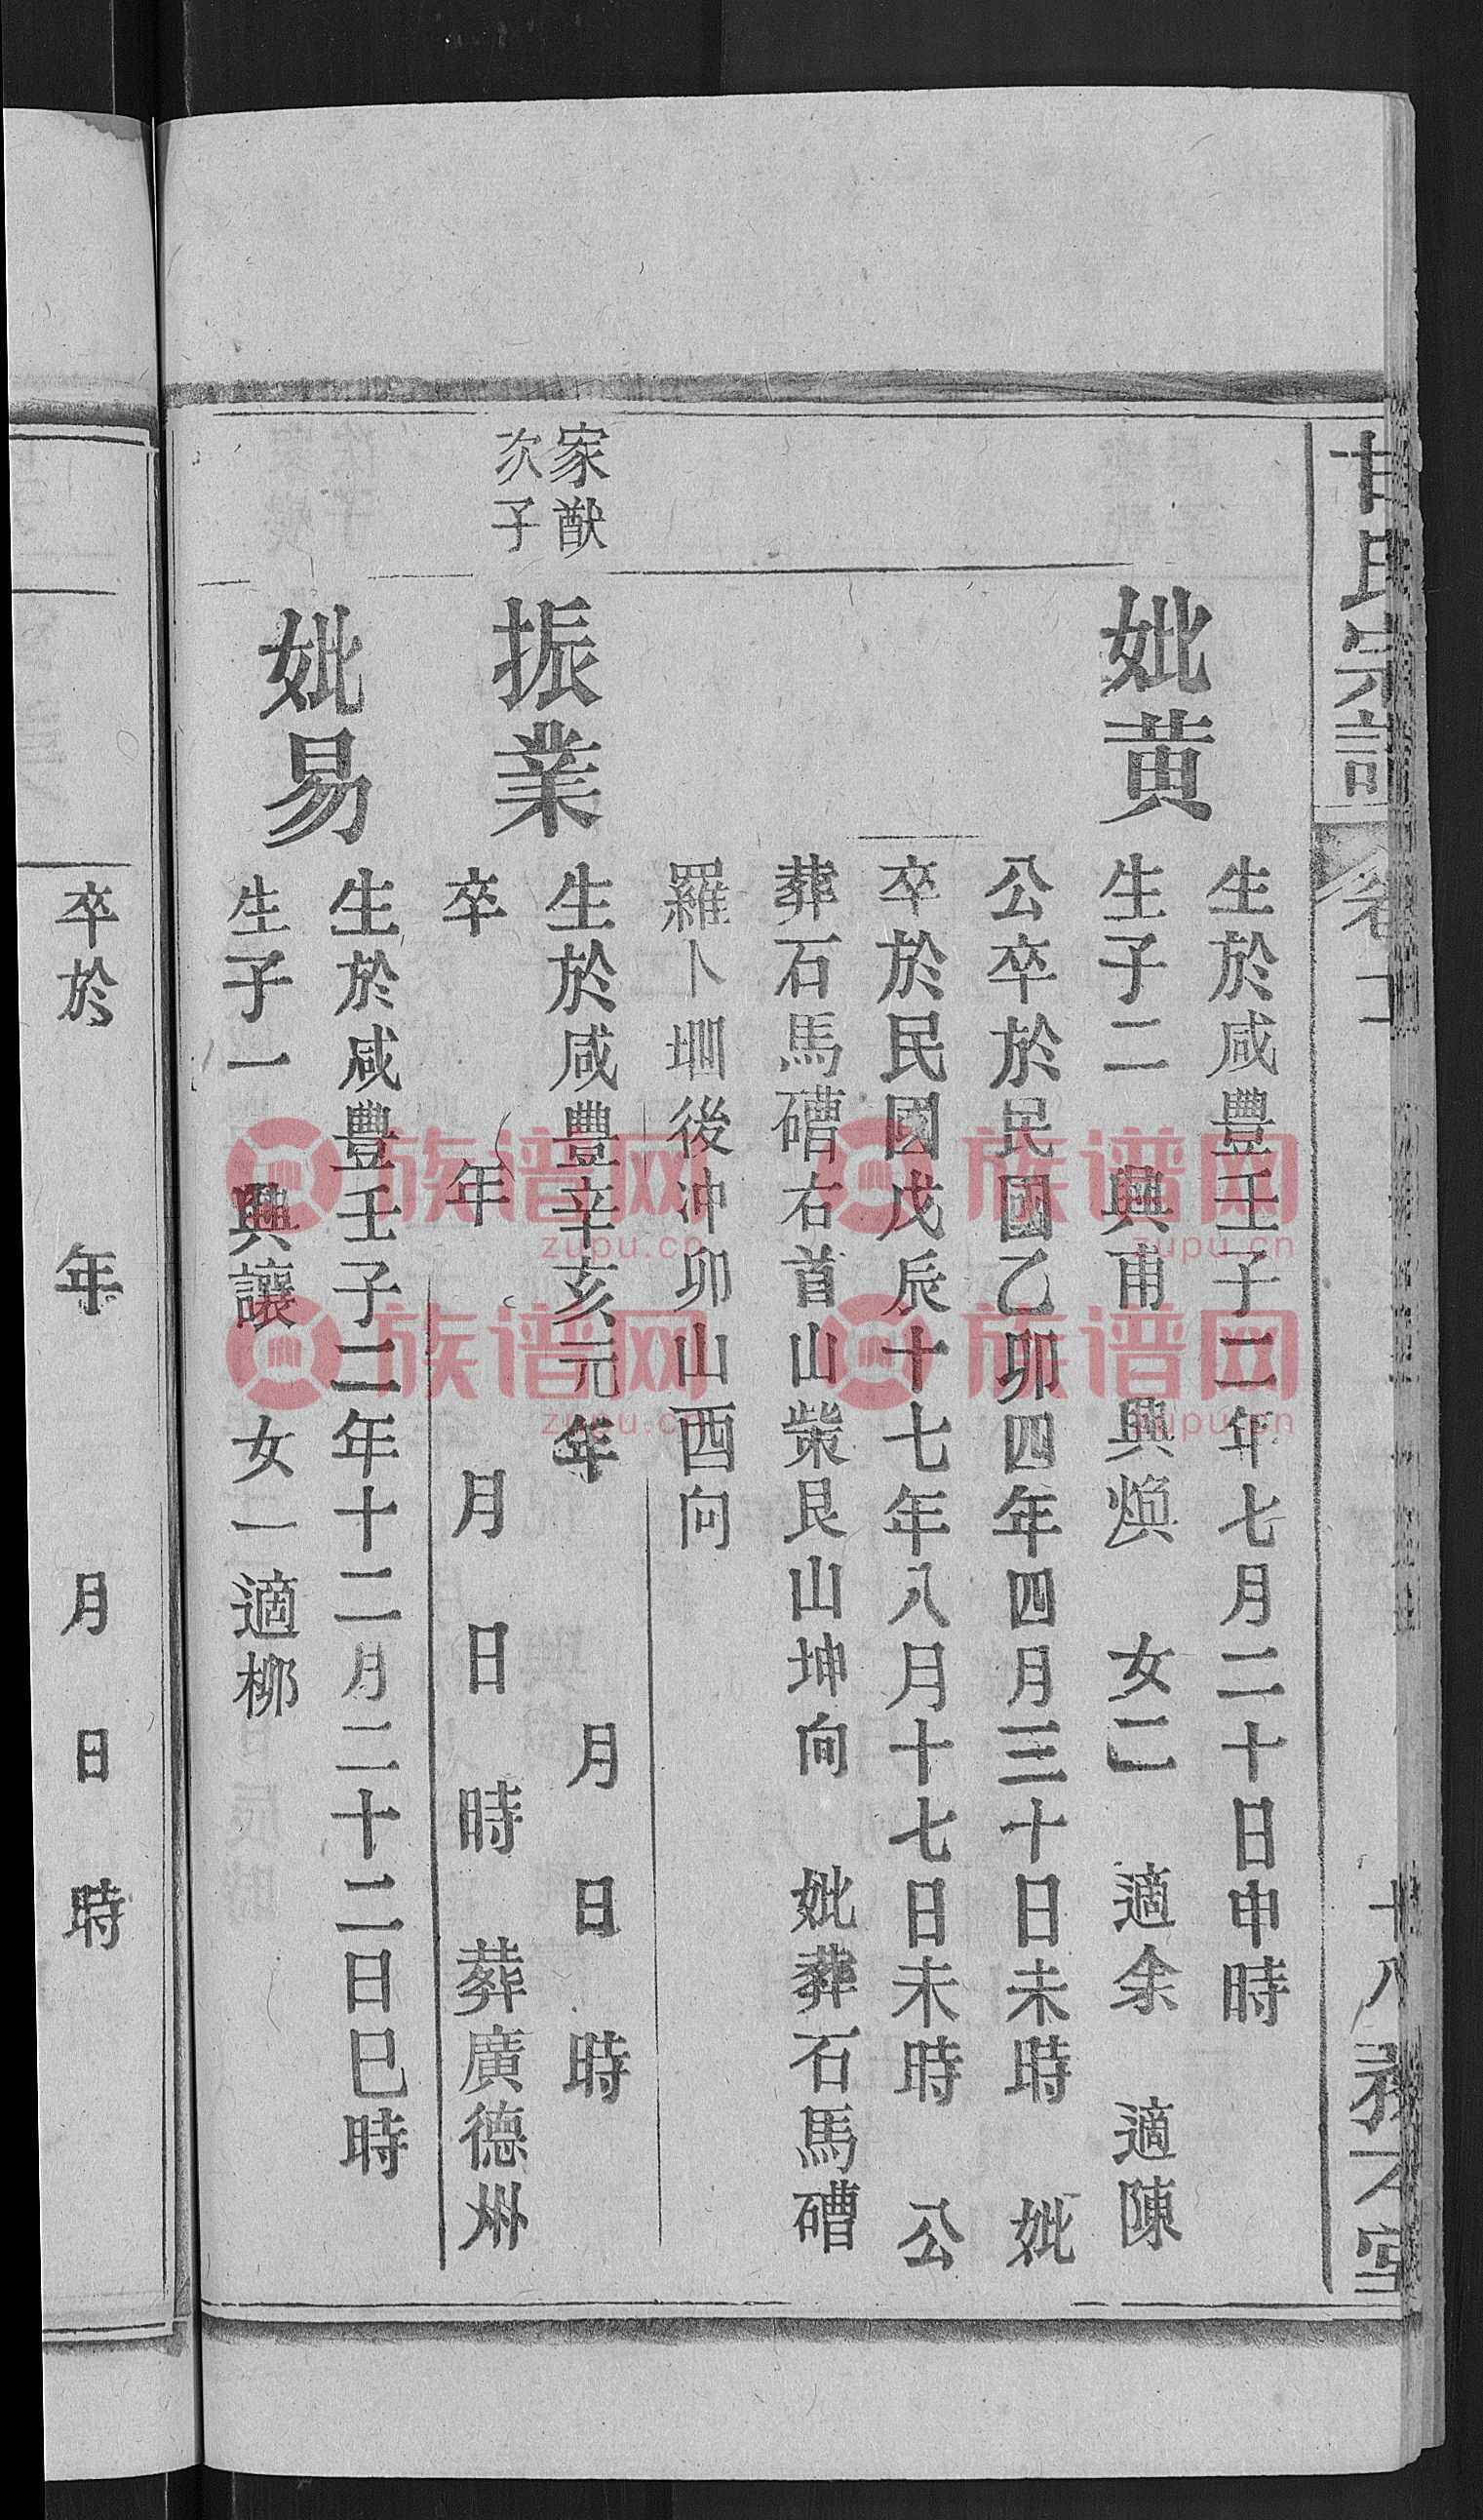 甘氏宗譜
十八
妣黄
生於咸豐壬子二年七月二十日申時
生子二 興甫 興煥 女二 適余 適陳
公卒於民國乙卯四年四月三十日未時 妣
卒於民國戊辰十七年八月十七日未時 公
葬石馬磄右首山柴艮山坤向 妣葬石馬磄
羅卜圳後冲卯山酉向
家猷
次子
振業
生於咸豐辛亥元年 月 日 時
卒 年 月 日 時 葬廣德州
妣易
生於咸豐壬子二年十二月二十二日巳時
生子一 興讓 女一適柳
卒於 年 月 日 時
族谱网
zupu.cn
族谱网
zupu.cn
族谱网
zupu.cn
族谱网
zupu.cn